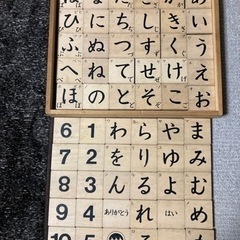 ひ に ち し き い
ふ ぬ つ す く う
へ ね て せ け え
ほ の と そ こ お
6 1 わ ら や ま
7 2 を り ゆ み
8 3 ん る よ む
9 4 ありがとう れ はい め
10 5 ろ